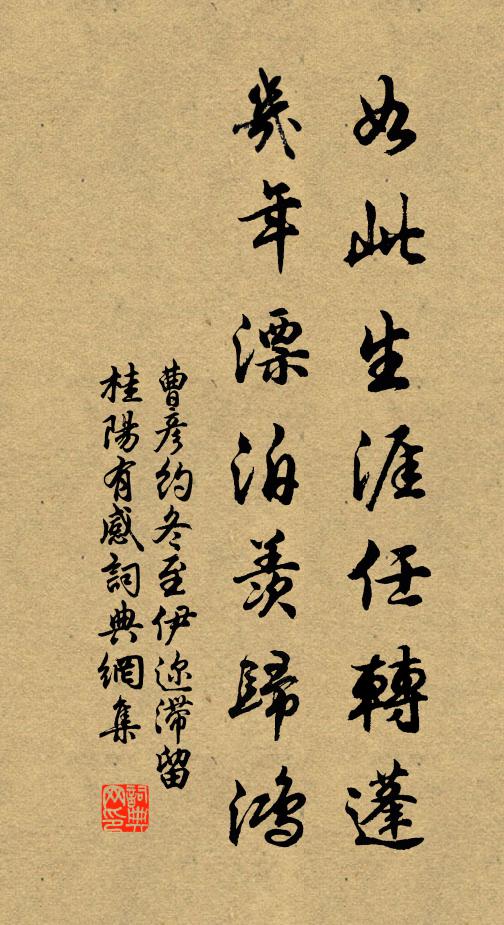 如此生涯任轉蓬
幾年漂泊羨歸鴻
曹彥約冬至伊邇滯留
桂陽有感詞典網集
詞典
网印